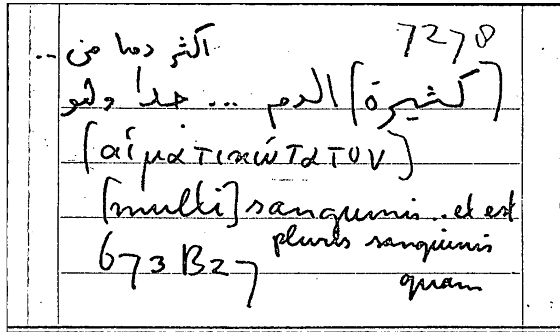 7278
اكثر دما من ...
(كثيرة) الدم ... جدا وهو
(αἱματικώτατον)
[multi] sanguinis .. et est
pluris sanguinis
quam
673 B27